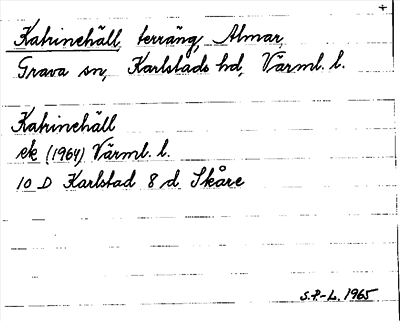 Katrinehäll, terräng, Almar,
Grava sn, Karlstads hd, Värml. l.
Katrinehäll
ek (1964) Värml. l.
10 D Karlstad 8 d Skåre
S.P.-L. 1965